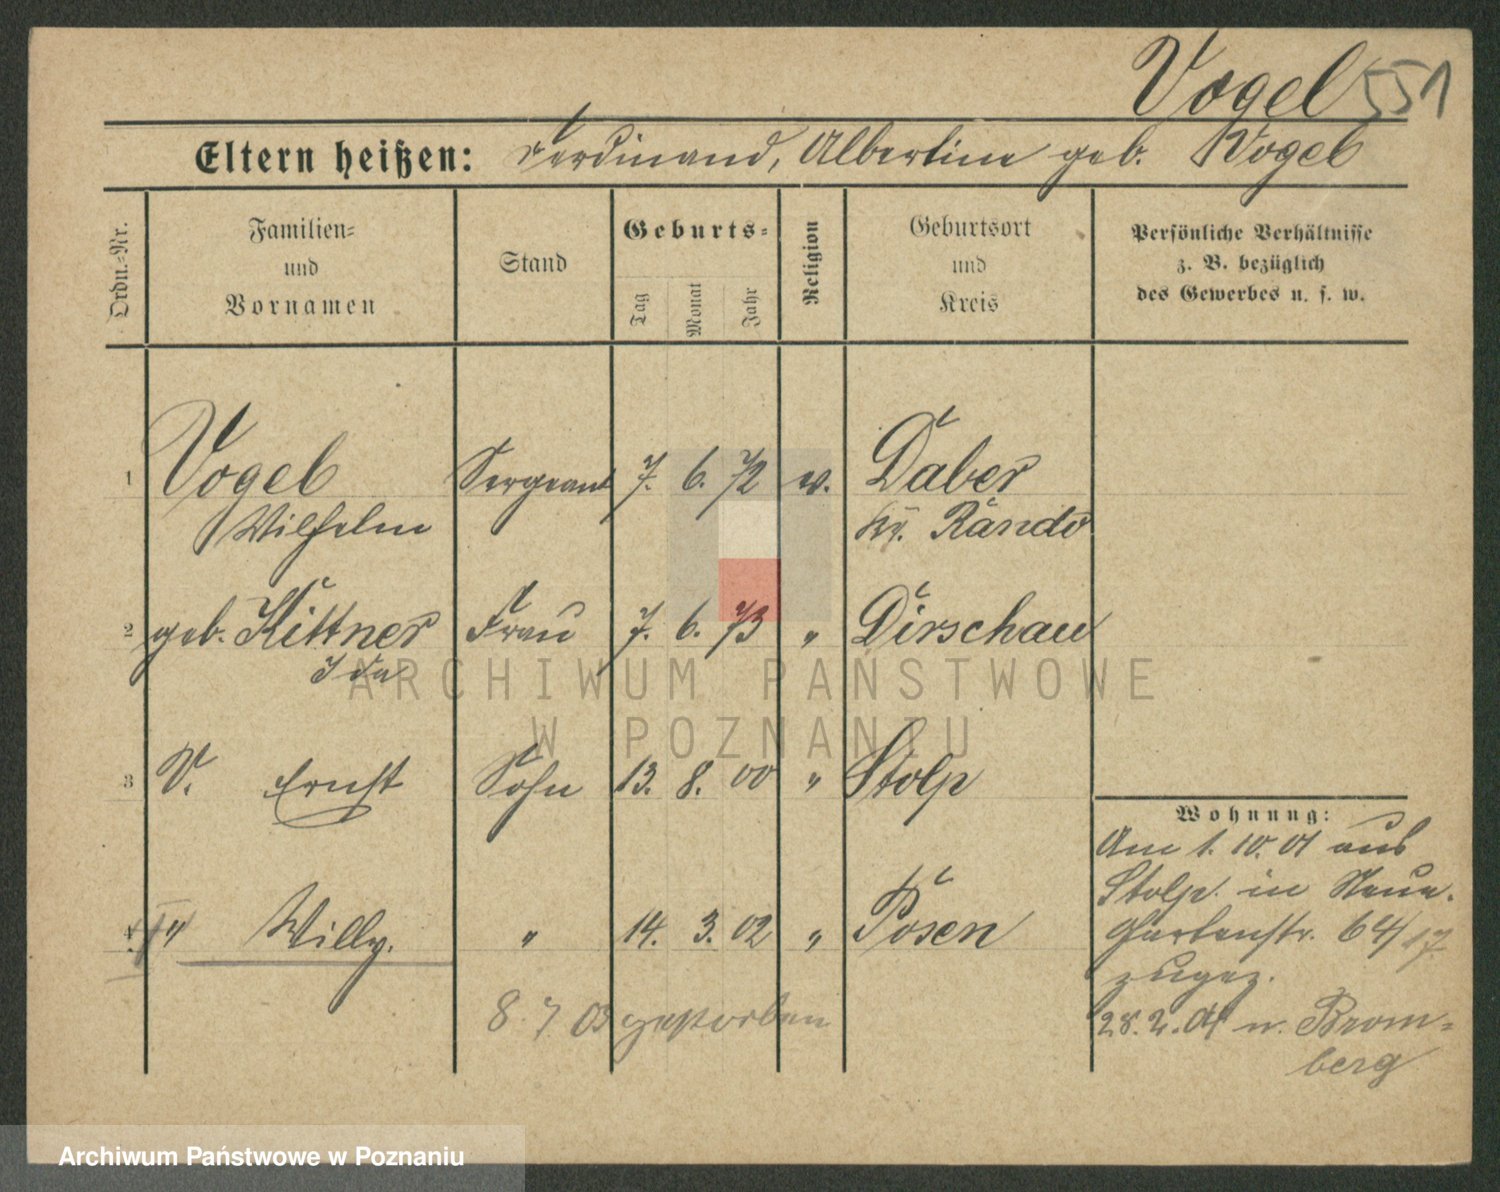 Vogel 551
Eltern heißen: Ferdinand, Albertine geb. Vogel
Ordn.-Nr.
Familien- und Vornamen
Stand
Geburts-
Tag Monat Jahr
Religion
Geburtsort und Kreis
Persönliche Verhältnisse
z. B. bezüglich
des Gewerbes u. s. w.
1 Vogel Sergeant 7. 6. 72 ev. Daber
Wilhelm Kr. Randow
2 geb. Kittner Frau 7. 6. 73 " Dirschau
Ida
3 V. Ernst Sohn 13. 8. 00 " Stolp
4 " Willy. " 14. 3. 02 " Posen
8. 7. 03 gestorben
Wohnung:
Am 1. 10. 01 aus
Stolp in Neue
Gartenstr. 64/17
zugez.
28. 2. 04 n. Brom-
berg
ARCHIWUM PAŃSTWOWE
W POZNANIU
Archiwum Państwowe w Poznaniu